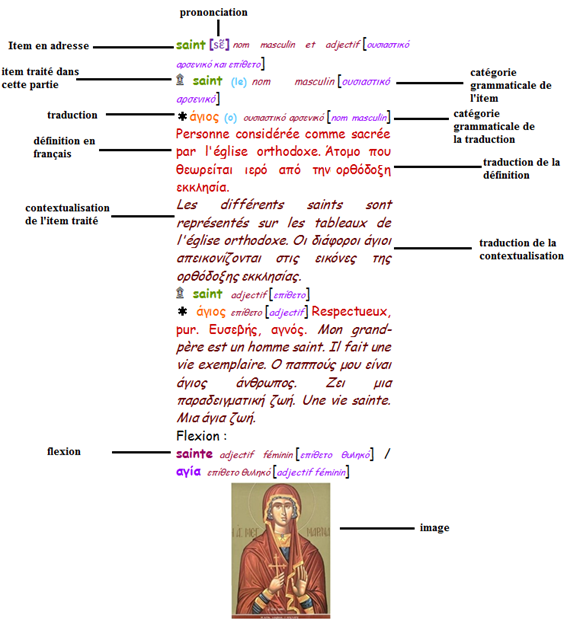 prononciation
Item en adresse
saint [sɛ̃] nom masculin et adjectif [ουσιαστικό
αρσενικό και επίθετο]
item traité dans
cette partie
saint (le) nom masculin [ουσιαστικό
αρσενικό]
catégorie
grammaticale de
l'item
traduction
✱ άγιος (ο) ουσιαστικό αρσενικό [nom masculin]
catégorie
grammaticale de
la traduction
définition en
français
Personne considérée comme sacrée
par l'église orthodoxe. Άτομο που
θεωρείται ιερό από την ορθόδοξη
εκκλησία.
traduction de la
définition
contextualisation
de l'item traité
Les différents saints sont
représentés sur les tableaux de
l'église orthodoxe. Οι διάφοροι άγιοι
απεικονίζονται στις εικόνες της
ορθόδοξης εκκλησίας.
traduction de la
contextualisation
saint adjectif [επίθετο]
✱ άγιος επίθετο [adjectif] Respectueux,
pur. Ευσεβής, αγνός. Mon grand-
père est un homme saint. Il fait une
vie exemplaire. Ο παππούς μου είναι
άγιος άνθρωπος. Ζει μια
παραδειγματική ζωή. Une vie sainte.
Μια άγια ζωή.
Flexion :
flexion
sainte adjectif féminin [επίθετο θυληκό] /
αγία επίθετο θυληκό [adjectif féminin]
image